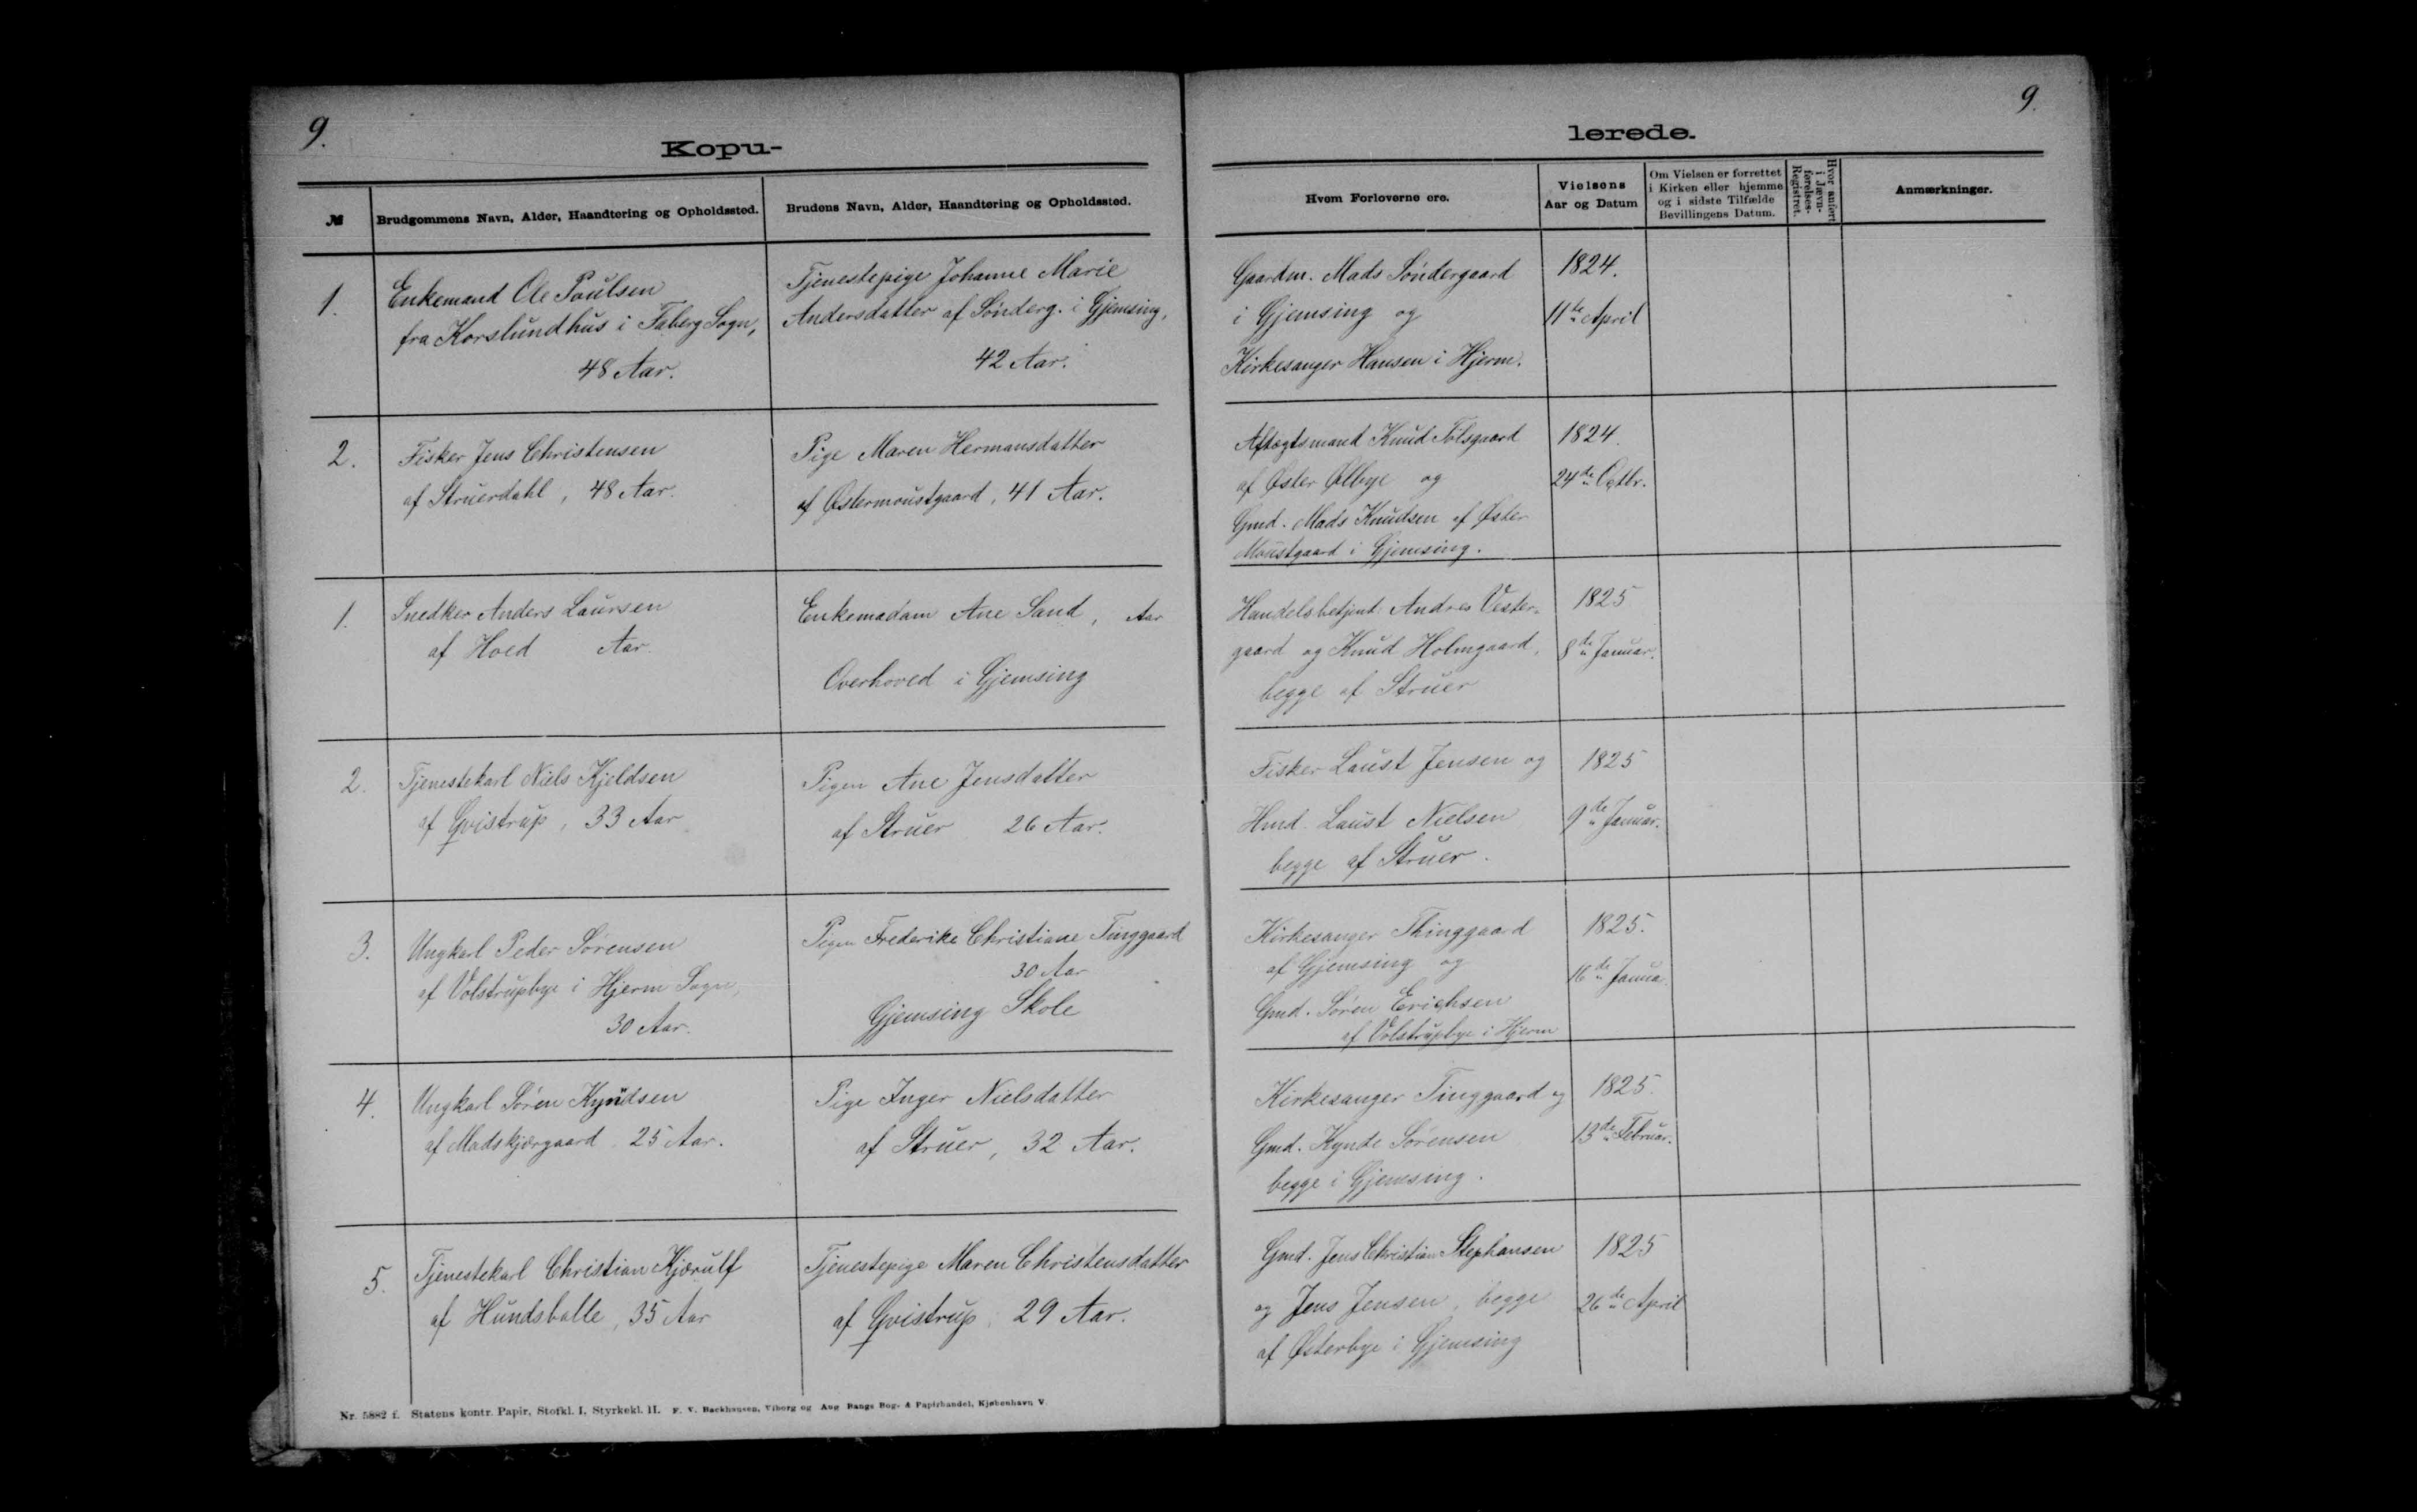 9.
Kopu-
№
Brudgommens Navn, Alder, Haandtering og Opholdssted.
Brudens Navn, Alder, Haandtering og Opholdssted.
1.
Enkemand Ole Poulsen
fra Korslundhus i Faberg Sogn,
48 Aar.
Tjenestepige Johanne Marie
Andersdatter af Sønderg. i Gjemsing,
42 Aar.
2.
Fisker Jens Christensen
af Struerdahl, 48 Aar.
Pige Maren Hermansdatter
af Østermoustgaard, 41 Aar.
1.
Snedker Anders Laursen
af Hoed Aar.
Enkemadam Ane Sand, Aar
Overhoved i Gjemsing
2.
Tjenestekarl Niels Kjeldsen
af Qvistrup, 33 Aar
Pigen Ane Jensdatter
af Struer 26 Aar.
3.
Ungkarl Peder Sørensen
af Volstrupbye i Hjerm Sogn,
30 Aar.
Pigen Frederike Christiane Tinggaard
30 Aar
Gjemsing Skole
4.
Ungkarl Søren Kyndsen
af Madskjærgaard 25 Aar.
Pige Inger Nielsdatter
af Struer, 32 Aar.
5.
Tjenestekarl Christian Kjærulf
af Hundsballe, 35 Aar
Tjenestepige Maren Christensdatter
af Qvistrup, 29 Aar.
Nr. 5882 f. Statens kontr. Papir, Stofkl. I, Styrkekl. II. F. V. Backhausen, Viborg og Aug Bangs Bog- & Papirhandel, Kjøbenhavn V.
9.
lerede.
Hvem Forloverne ere.
Vielsens
Aar og Datum
Om Vielsen er forrettet
i Kirken eller hjemme
og i sidste Tilfælde
Bevillingens Datum.
Hvor anført
i Jævn-
førelses-
Registret.
Anmærkninger.
Gaardm. Mads Søndergaard
i Gjemsing og
Kirkesanger Hansen i Hjerm.
1824.
11te April
Aftægtsmand Knud Tølsgaard
af Øster Ølbye og
Gmd. Mads Knudsen af Øster
Moustgaard i Gjemsing.
1824.
24de Octbr.
Handelsbetjent Andres Vester-
gaard og Knud Holmgaard,
begge af Struer
1825
8de Januar.
Fisker Laust Jensen og
Hmd. Laust Nielsen
begge af Struer.
1825
9de Januar.
Kirkesanger Thinggaard
af Gjemsing og
Gmd. Søren Erichsen
af Volstrupbye i Hjerm
1825.
16de Janua.
Kirkesanger Tinggaard og
Gmd. Kynde Sørensen
begge i Gjemsing.
1825.
13de Februar.
Gmd. Jens Christian Stephansen
og Jens Jensen, begge
af Østerbye i Gjemsing
1825
26de April